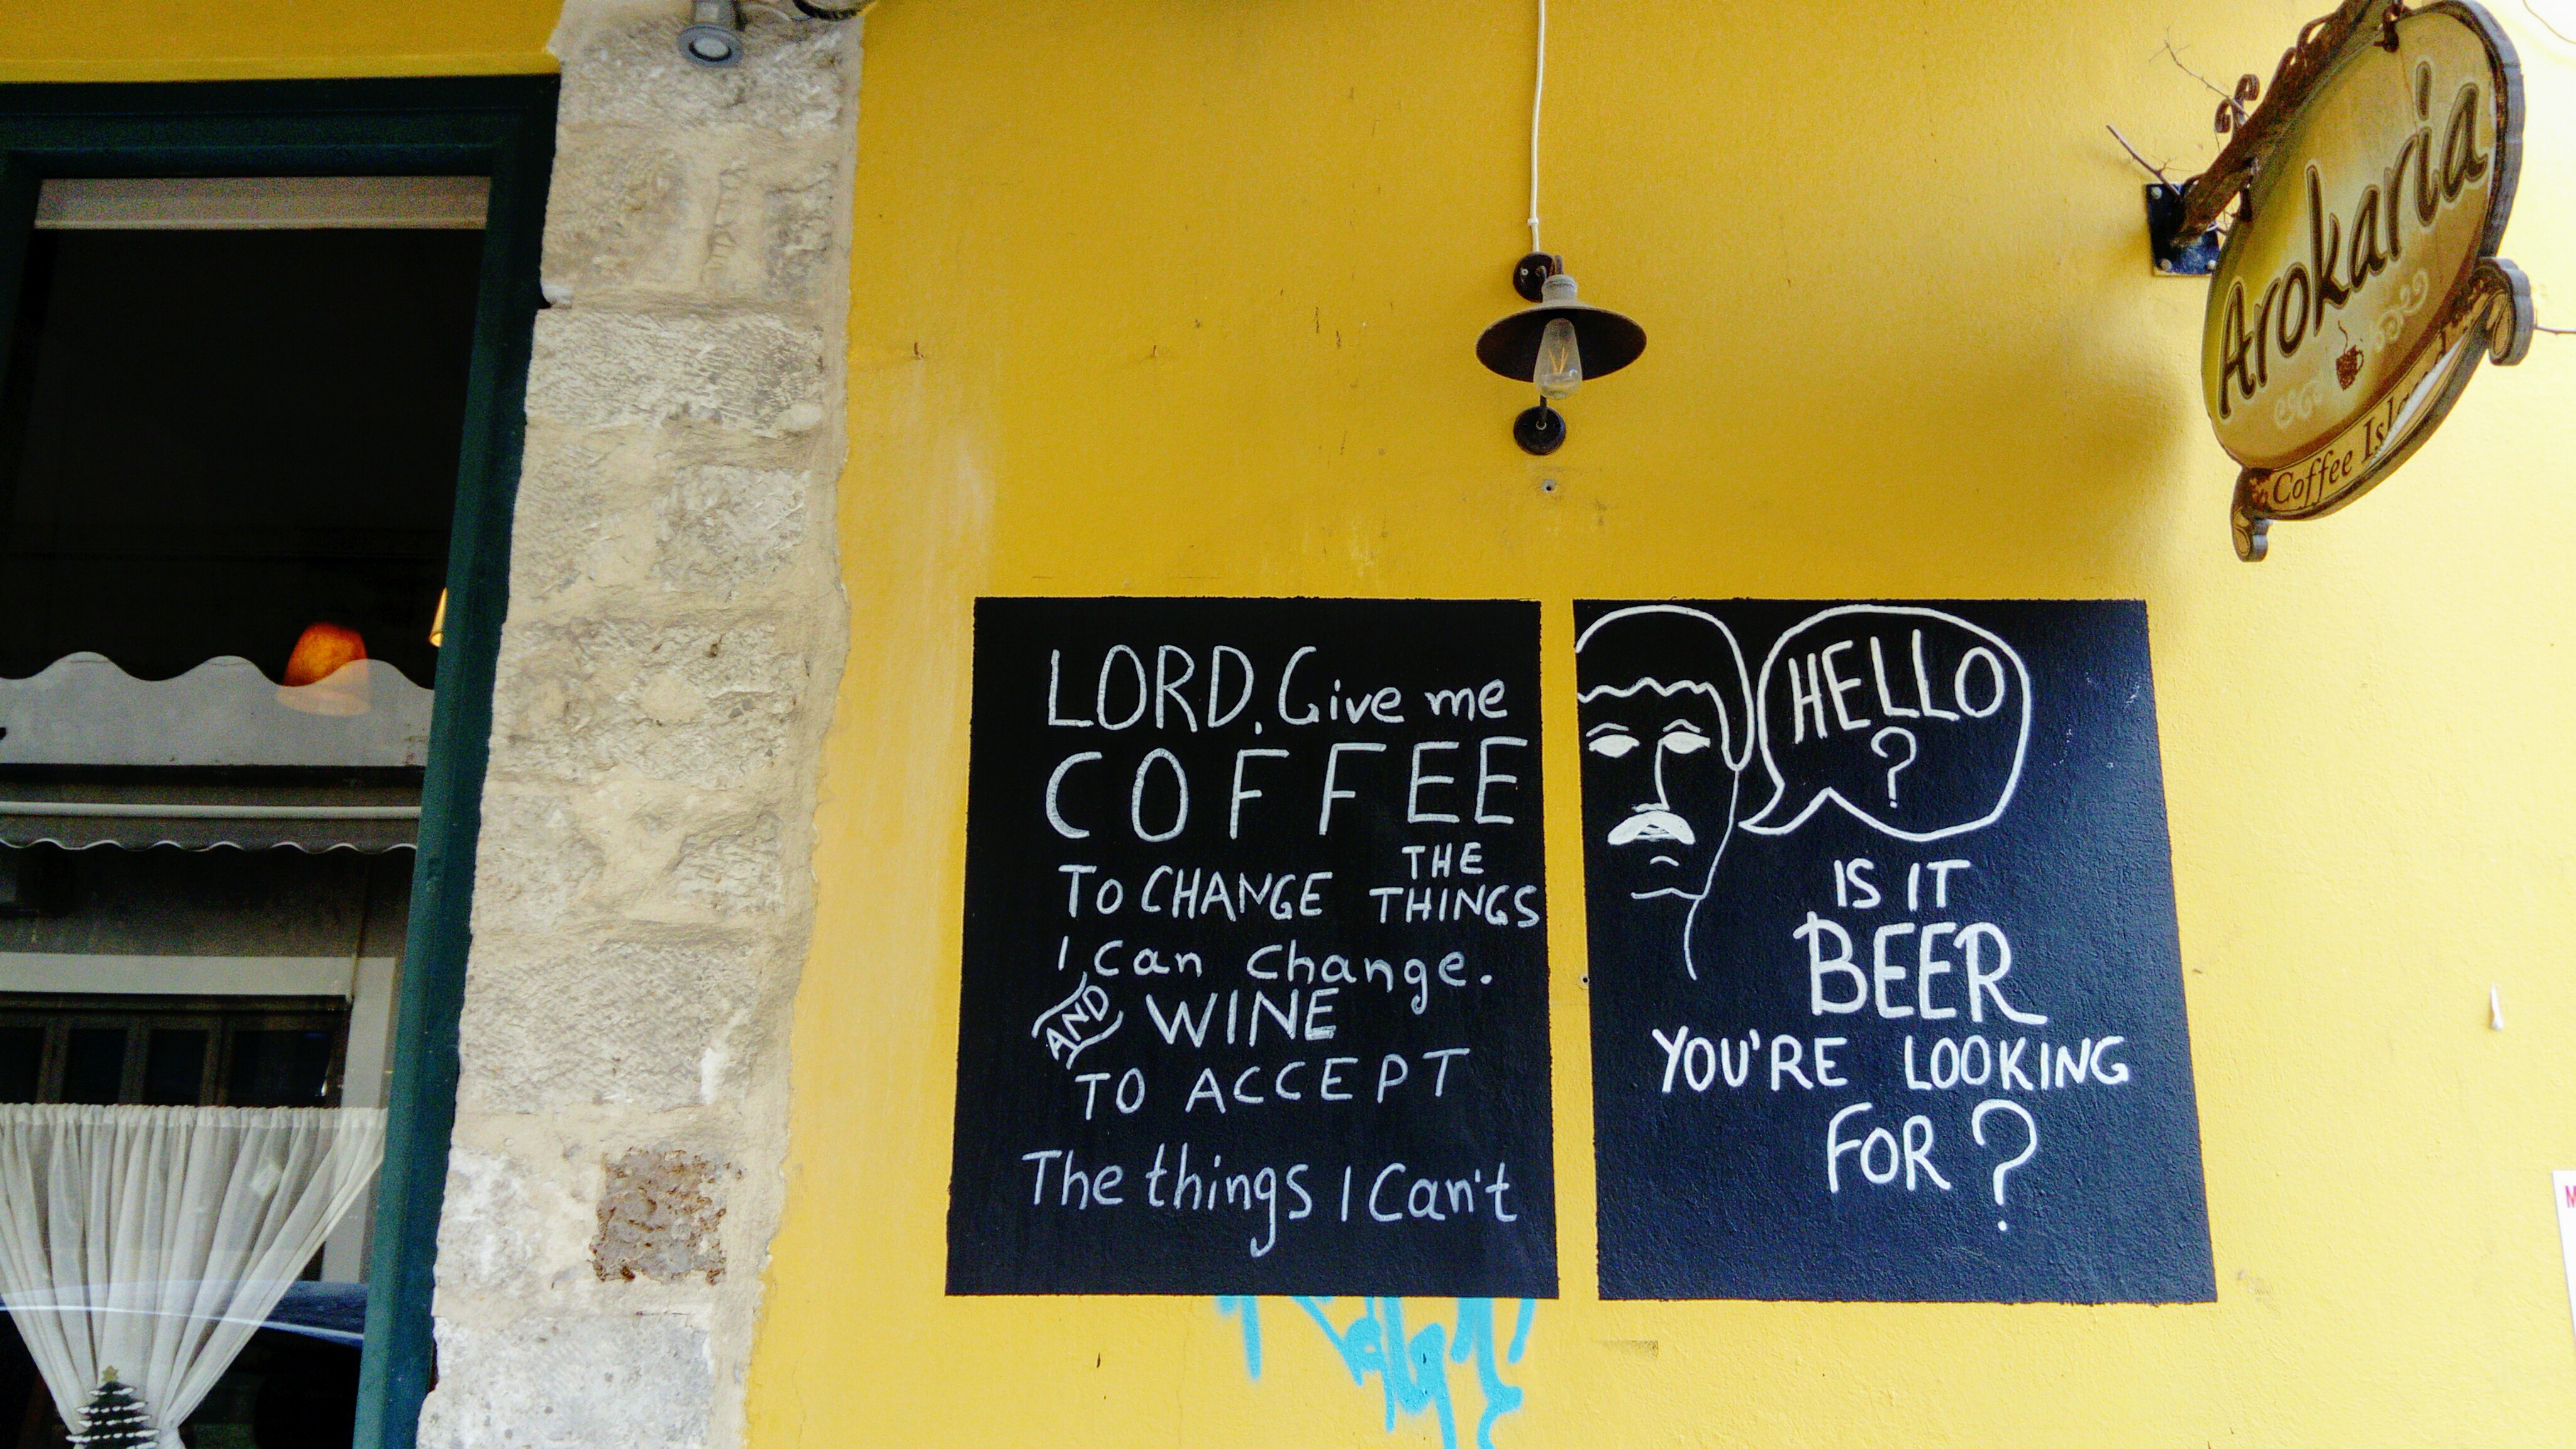 Arokaria
Coffee Island
LORD, Give me
COFFEE
TO CHANGE THE THINGS
I can change.
AND WINE
TO ACCEPT
The things I Can't
HELLO
?
IS IT
BEER
YOU'RE LOOKING
FOR?